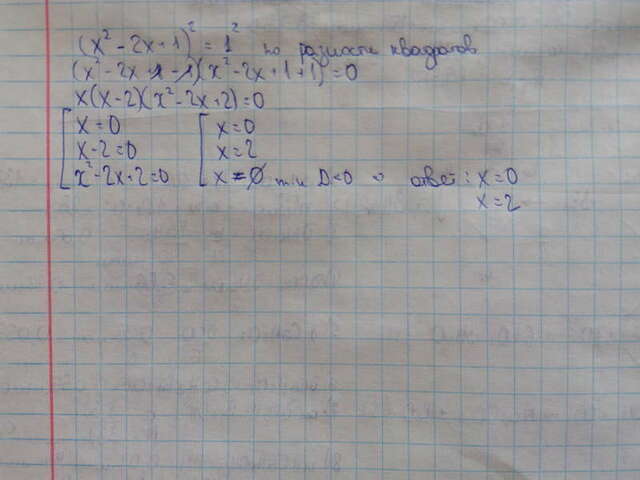 (x² - 2x + 1)² = 1² по разности квадратов
(x² - 2x + 1 - 1)(x² - 2x + 1 + 1) = 0
x(x - 2)(x² - 2x + 2) = 0
[ x = 0 [ x = 0
x - 2 = 0 x = 2
x² - 2x + 2 = 0 x = ∅ D < 0 ответ: x = 0
x = 2